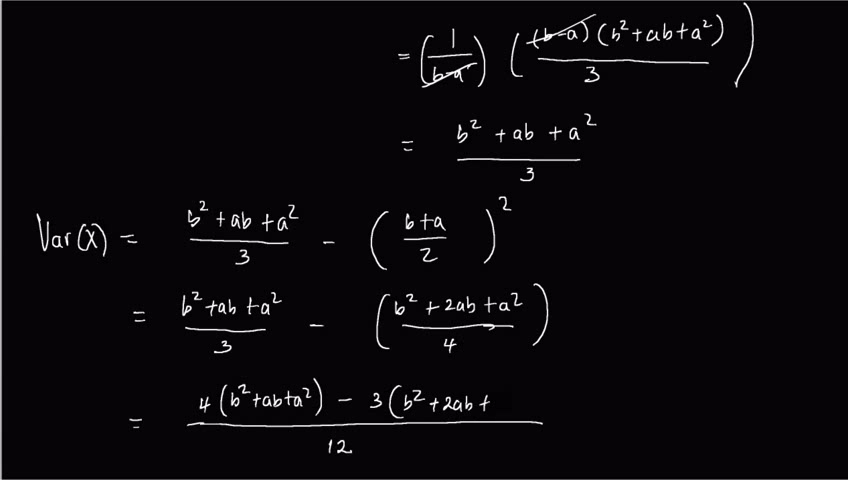 = (1/(b-a)) ((b-a)(b²+ab+a²)/3)
= (b² + ab + a²)/3
Var(X) = (b²+ab+a²)/3 - ((b+a)/2)²
= (b²+ab+a²)/3 - ((b²+2ab+a²)/4)
= (4(b²+ab+a²) - 3(b²+2ab+)/12